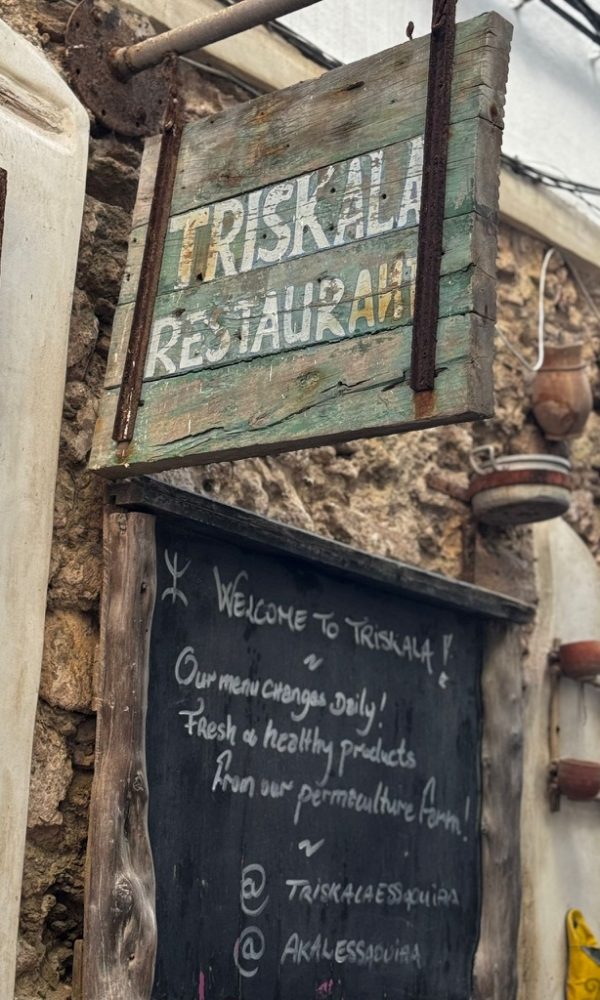 TRISKALA
RESTAURANT
ⵣ WELCOME TO TRISKALA !
~
Our menu changes Daily!
Fresh & healthy products
from our permaculture farm!
~
@ TRISKALAESSAOUIRA
@ AKALESSAOUIRA